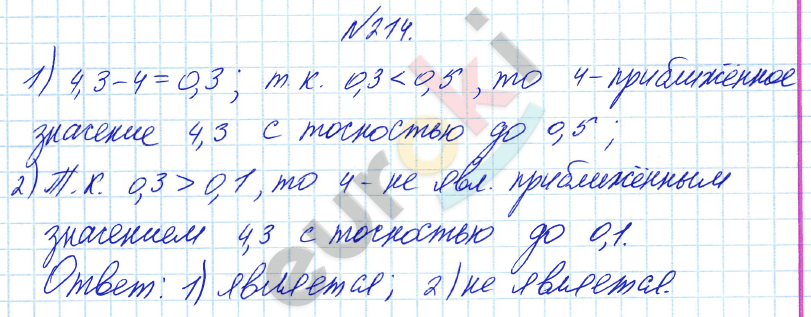 №214.
1) 4,3-4=0,3; т.к. 0,3<0,5, то 4-приближённое
значение 4,3 с точностью до 0,5;
2) Т.к. 0,3>0,1, то 4-не явл. приближённым
значением 4,3 с точностью до 0,1.
Ответ: 1) является; 2) не является.
euroki